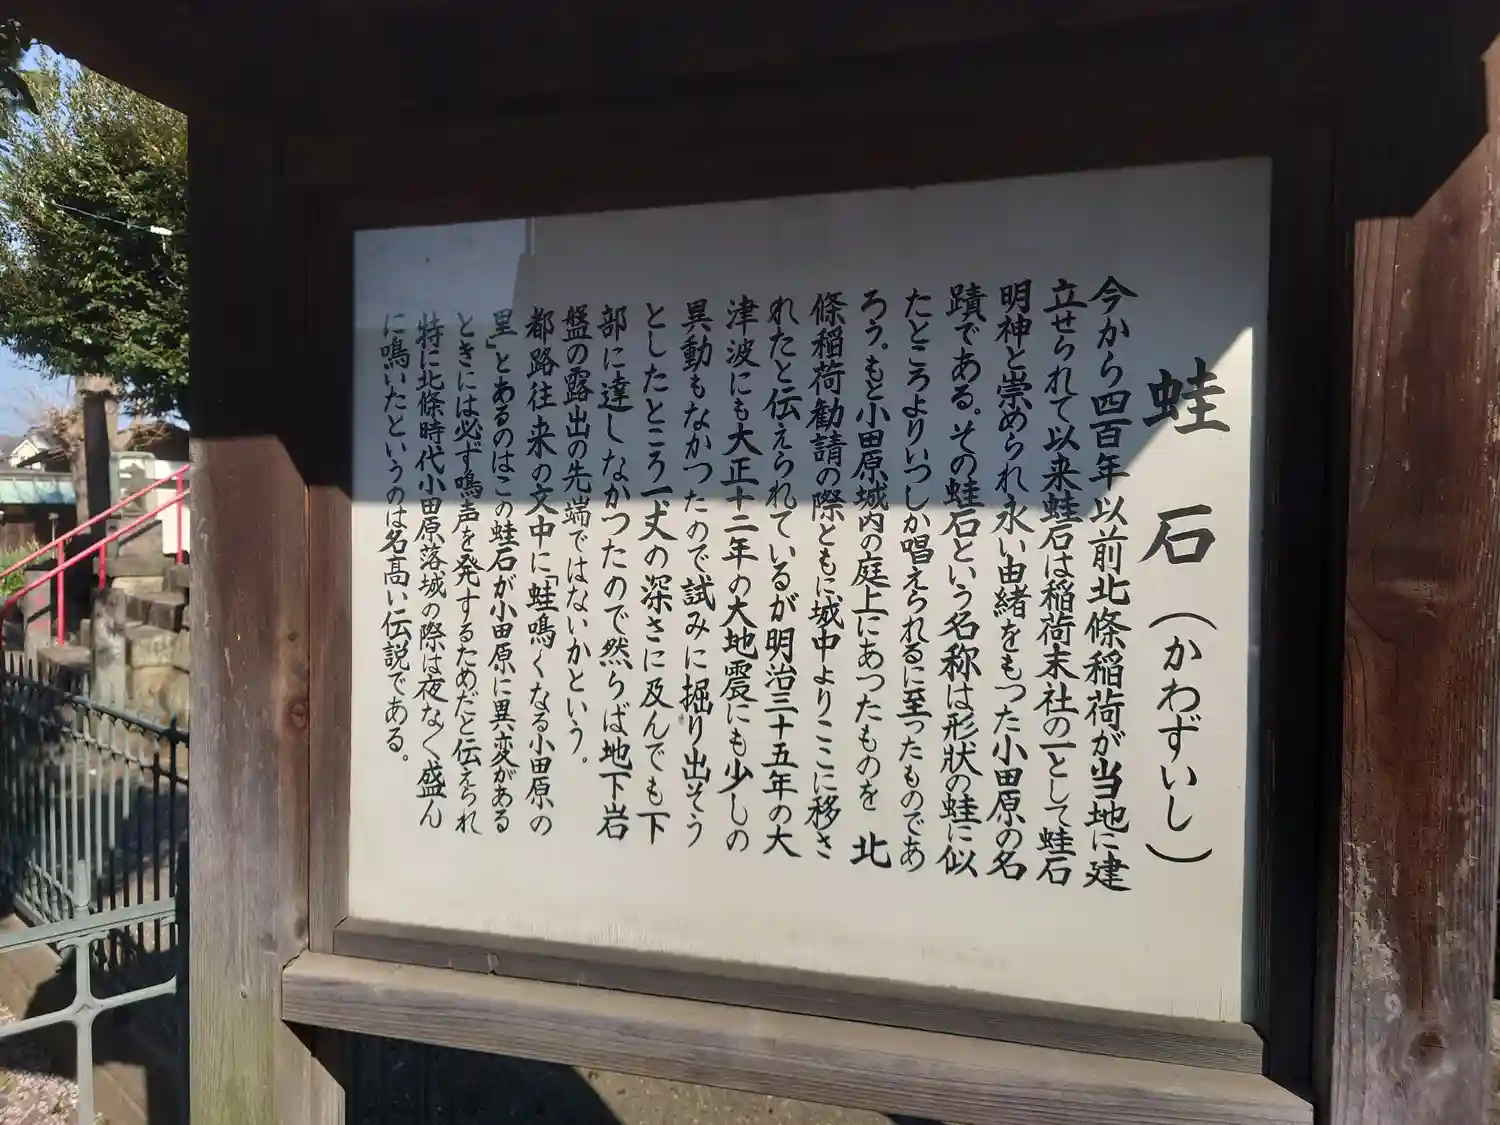 蛙石(かわずいし)
今から四百年以前北條稲荷が当地に建
立せられて以来蛙石は稲荷末社の一として蛙石
明神と崇められ永い由緒をもつた小田原の名
蹟である。その蛙石という名称は形状の蛙に似
たところよりいつしか唱えられるに至ったものであ
ろう。もと小田原城内の庭上にあつたものを 北
條稲荷勧請の際ともに城中よりここに移さ
れたと伝えられているが明治三十五年の大
津波にも大正十二年の大地震にも少しの
異動もなかつたので試みに掘り出そう
としたところ一丈の深さに及んでも下
部に達しなかつたので然らば地下岩
盤の露出の先端ではないかという。
都路往来の文中に「蛙鳴くなる小田原の
里」とあるのはこの蛙石が小田原に異変がある
ときには必ず鳴声を発するためだと伝えられ
特に北條時代小田原落城の際は夜な〱盛ん
に鳴いたというのは名高い伝説である。